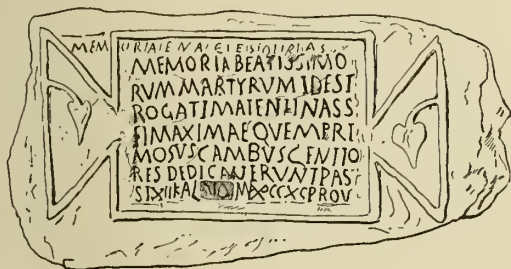 MEM
MEMORIA BEATISSIMO
RVM MARTYRVM IDEST
ROGATI MAIENTI NASS
EI MAXIMAE QVEM PRI
MOSVS CAMBVS GENITO
RES DEDICAVERVNT PAS
SI XII KAL PROV